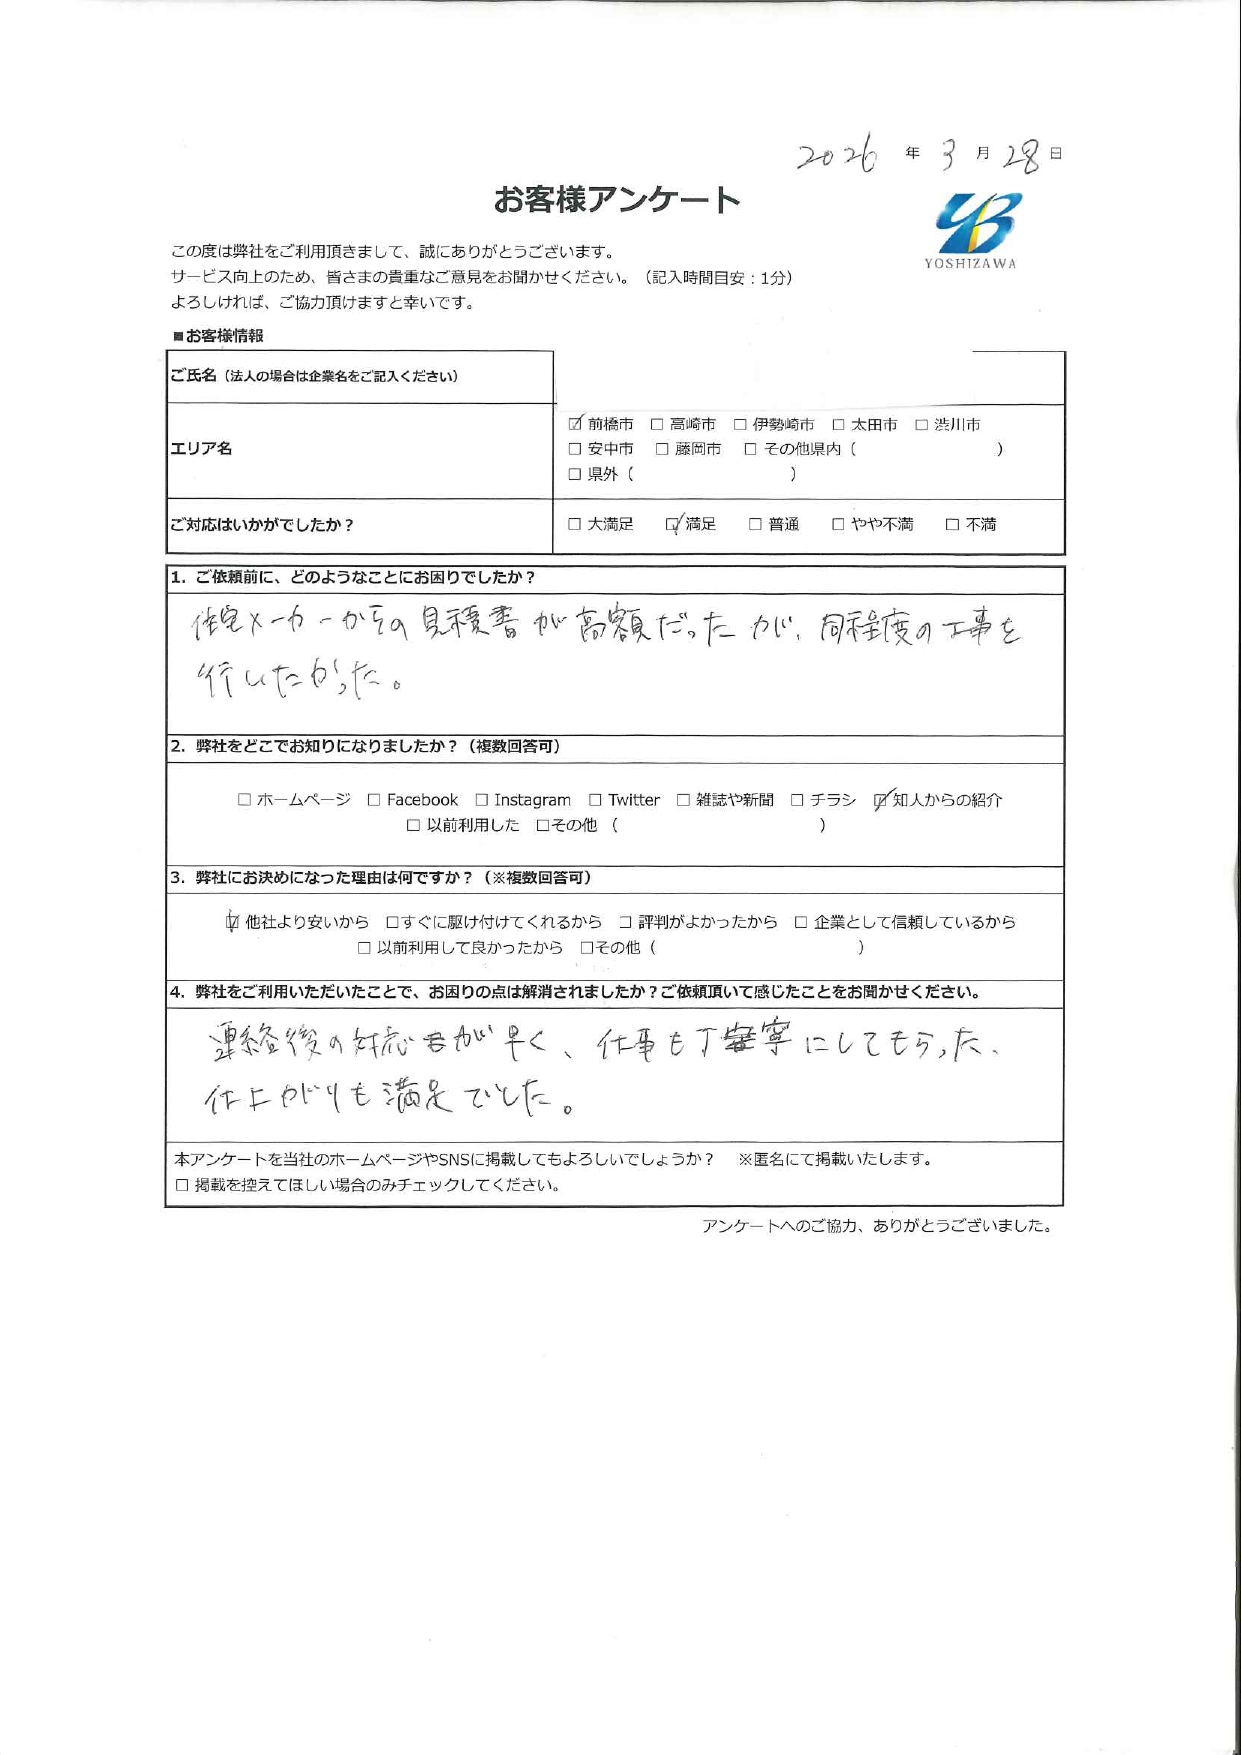 2026 年 3 月 28 日
お客様アンケート
YOSHIZAWA
この度は弊社をご利用頂きまして、誠にありがとうございます。
サービス向上のため、皆さまの貴重なご意見をお聞かせください。（記入時間目安：1分）
よろしければ、ご協力頂けますと幸いです。
■お客様情報
ご氏名（法人の場合は企業名をご記入ください）
エリア名
☑ 前橋市 □ 高崎市 □ 伊勢崎市 □ 太田市 □ 渋川市
□ 安中市 □ 藤岡市 □ その他県内（ ）
□ 県外（ ）
ご対応はいかがでしたか？
□ 大満足 ☑ 満足 □ 普通 □ やや不満 □ 不満
1. ご依頼前に、どのようなことにお困りでしたか？
住宅メーカーからの見積書が高額だったが、同程度の工事を
行いたかった。
2. 弊社をどこでお知りになりましたか？（複数回答可）
□ ホームページ □ Facebook □ Instagram □ Twitter □ 雑誌や新聞 □ チラシ ☑ 知人からの紹介
□ 以前利用した □その他 （ ）
3. 弊社にお決めになった理由は何ですか？（※複数回答可）
☑ 他社より安いから □すぐに駆け付けてくれるから □ 評判がよかったから □ 企業として信頼しているから
□ 以前利用して良かったから □その他（ ）
4. 弊社をご利用いただいたことで、お困りの点は解消されましたか？ご依頼頂いて感じたことをお聞かせください。
連絡後の対応が早く、仕事も丁寧にしてもらった、
仕上がりも満足でした。
本アンケートを当社のホームページやSNSに掲載してもよろしいでしょうか？ ※匿名にて掲載いたします。
□ 掲載を控えてほしい場合のみチェックしてください。
アンケートへのご協力、ありがとうございました。